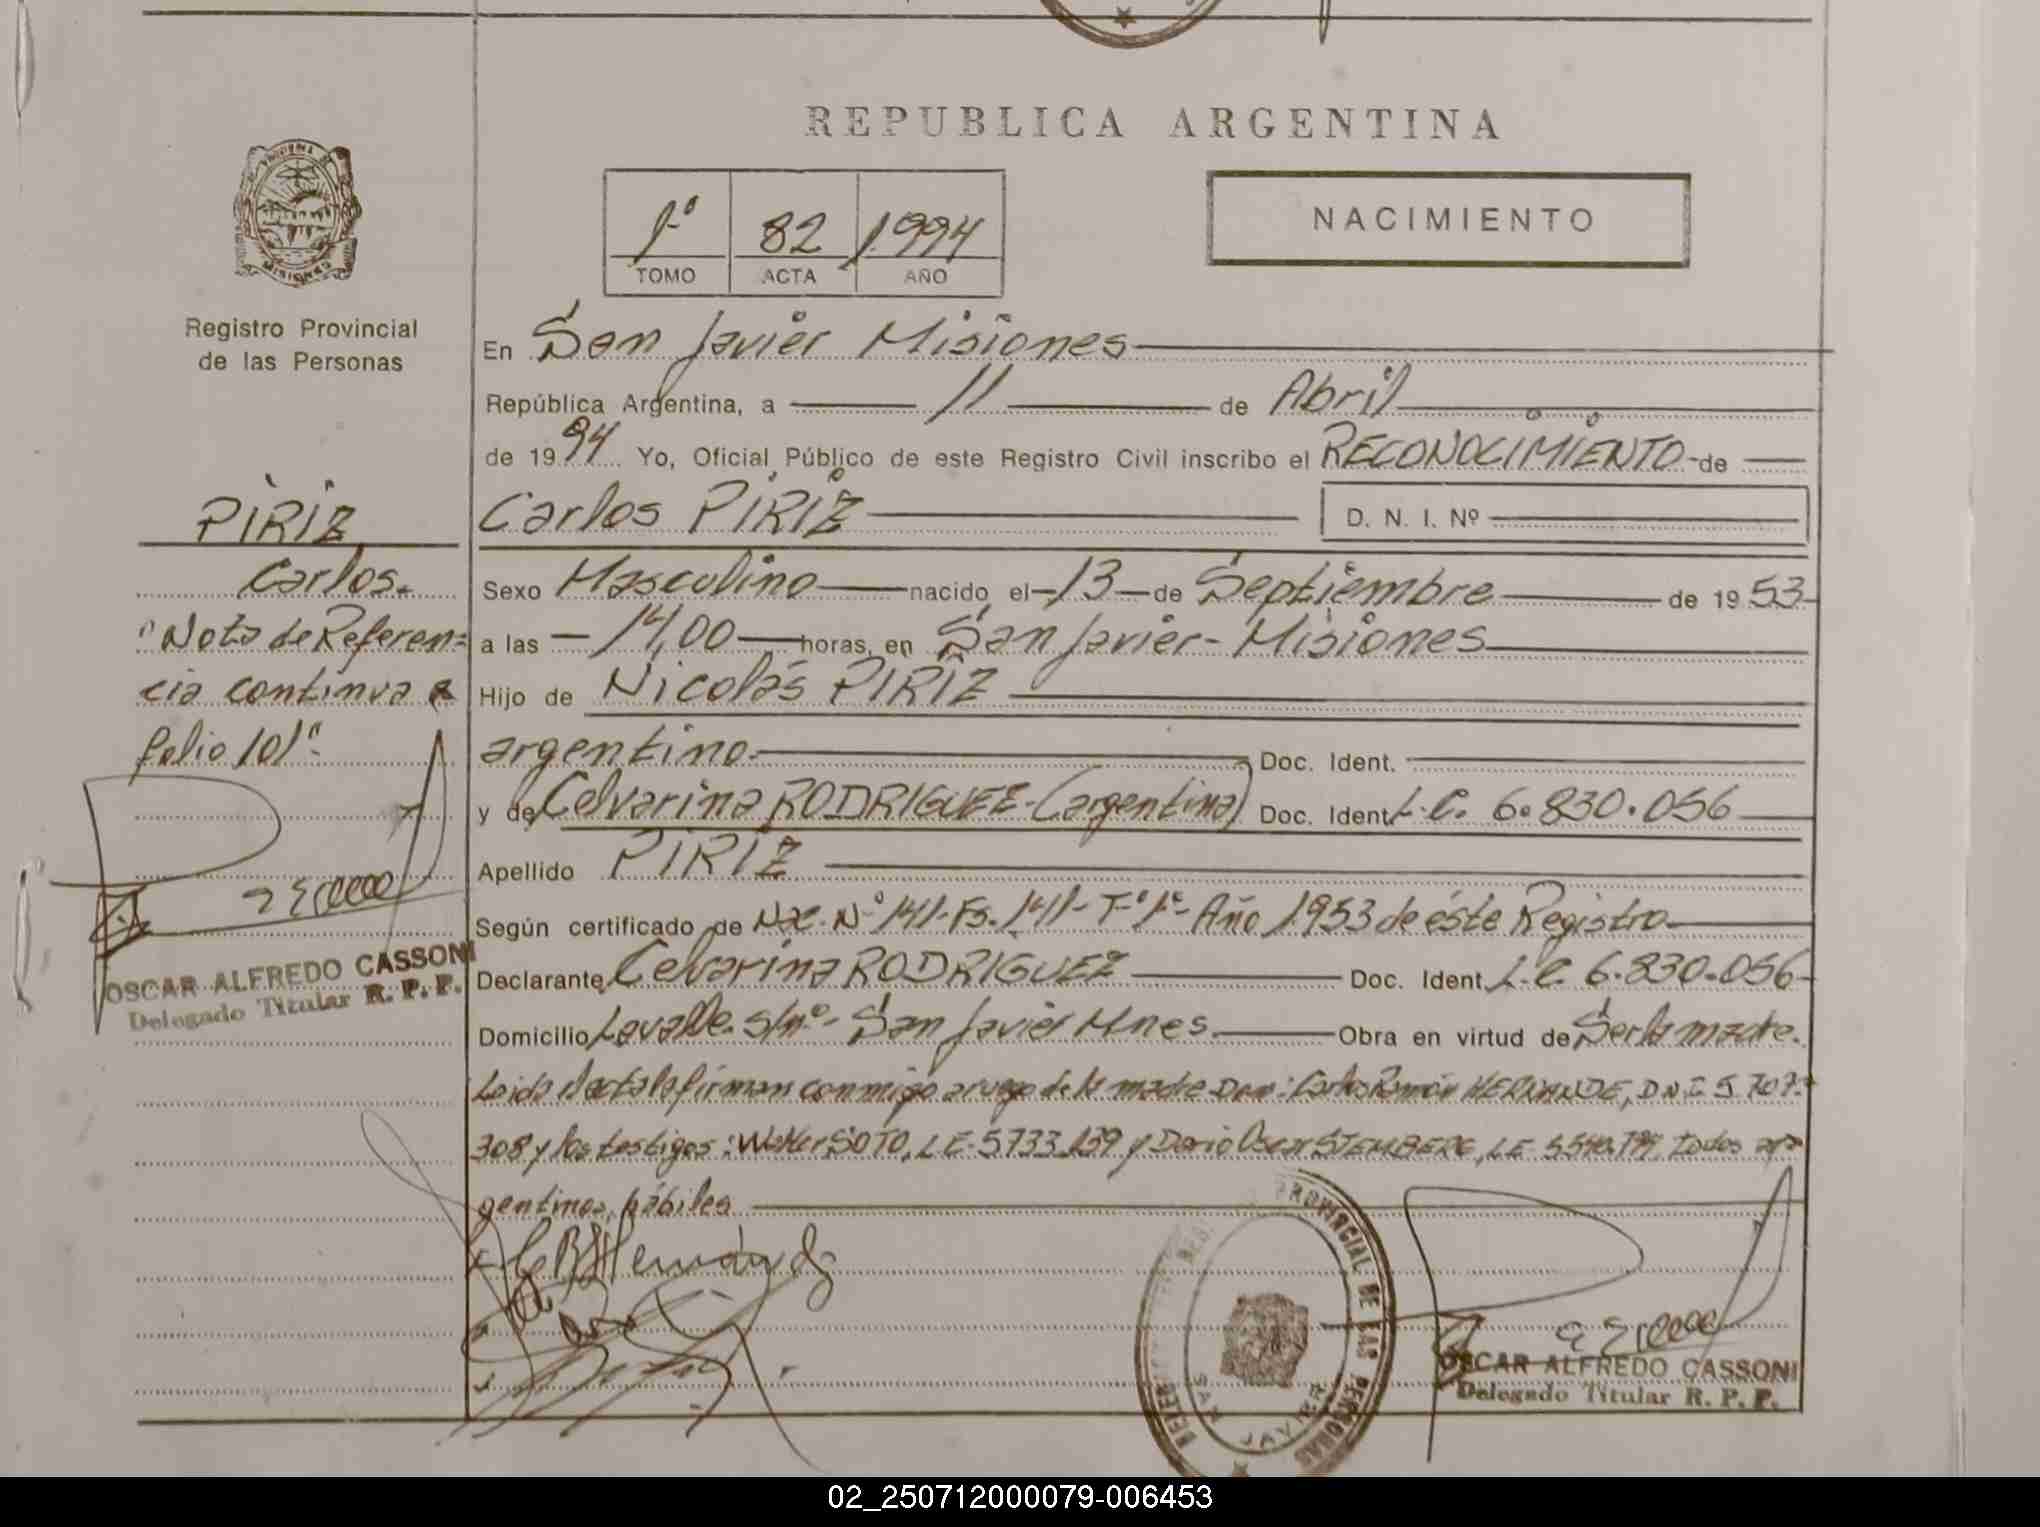 REPUBLICA ARGENTINA
PROVINCIA DE
MISIONES
Registro Provincial
de las Personas
1º 82 1.994
TOMO ACTA AÑO
NACIMIENTO
En San Javier Misiones
República Argentina, a 11 de Abril
de 1994 Yo, Oficial Público de este Registro Civil inscribo el RECONOCIMIENTO de
Carlos PIRIZ D. N. I. Nº
Sexo Masculino nacido el 13 de Septiembre de 1953
a las 14,00 horas, en San Javier - Misiones
Hijo de Nicolás PIRIZ
argentino. Doc. Ident.
y de Celvarina RODRIGUEZ - (argentina) Doc. Ident. L.C. 6.830.056
Apellido PIRIZ
Según certificado de Nac. Nº 141 - Fs. 141 - Tº 1º - Año 1.953 de éste Registro
Declarante Celvarina RODRIGUEZ Doc. Ident. L.C. 6.830.056
Domicilio Lavalle s/nº - San Javier Mnes. Obra en virtud de Ser la madre.
Leida el acta la firman conmigo a ruego de la madre Don: Carlos Ramón HERNANDE, D N I 5.707.
308 y los testigos: Walter SOTO, L E - 5733.139 y Dario Oscar STEMBERE, L E todos ar
gentinos, hábiles
PIRIZ
Carlos.
"Nota de Referen=
cia continua a
folio 101"
OSCAR ALFREDO CASSONI
Delegado Titular R. P. P.
PROVINCIAL DE LAS PERSONAS
SAN JAVIER
OSCAR ALFREDO CASSONI
Delegado Titular R. P. P.
02_250712000079-006453